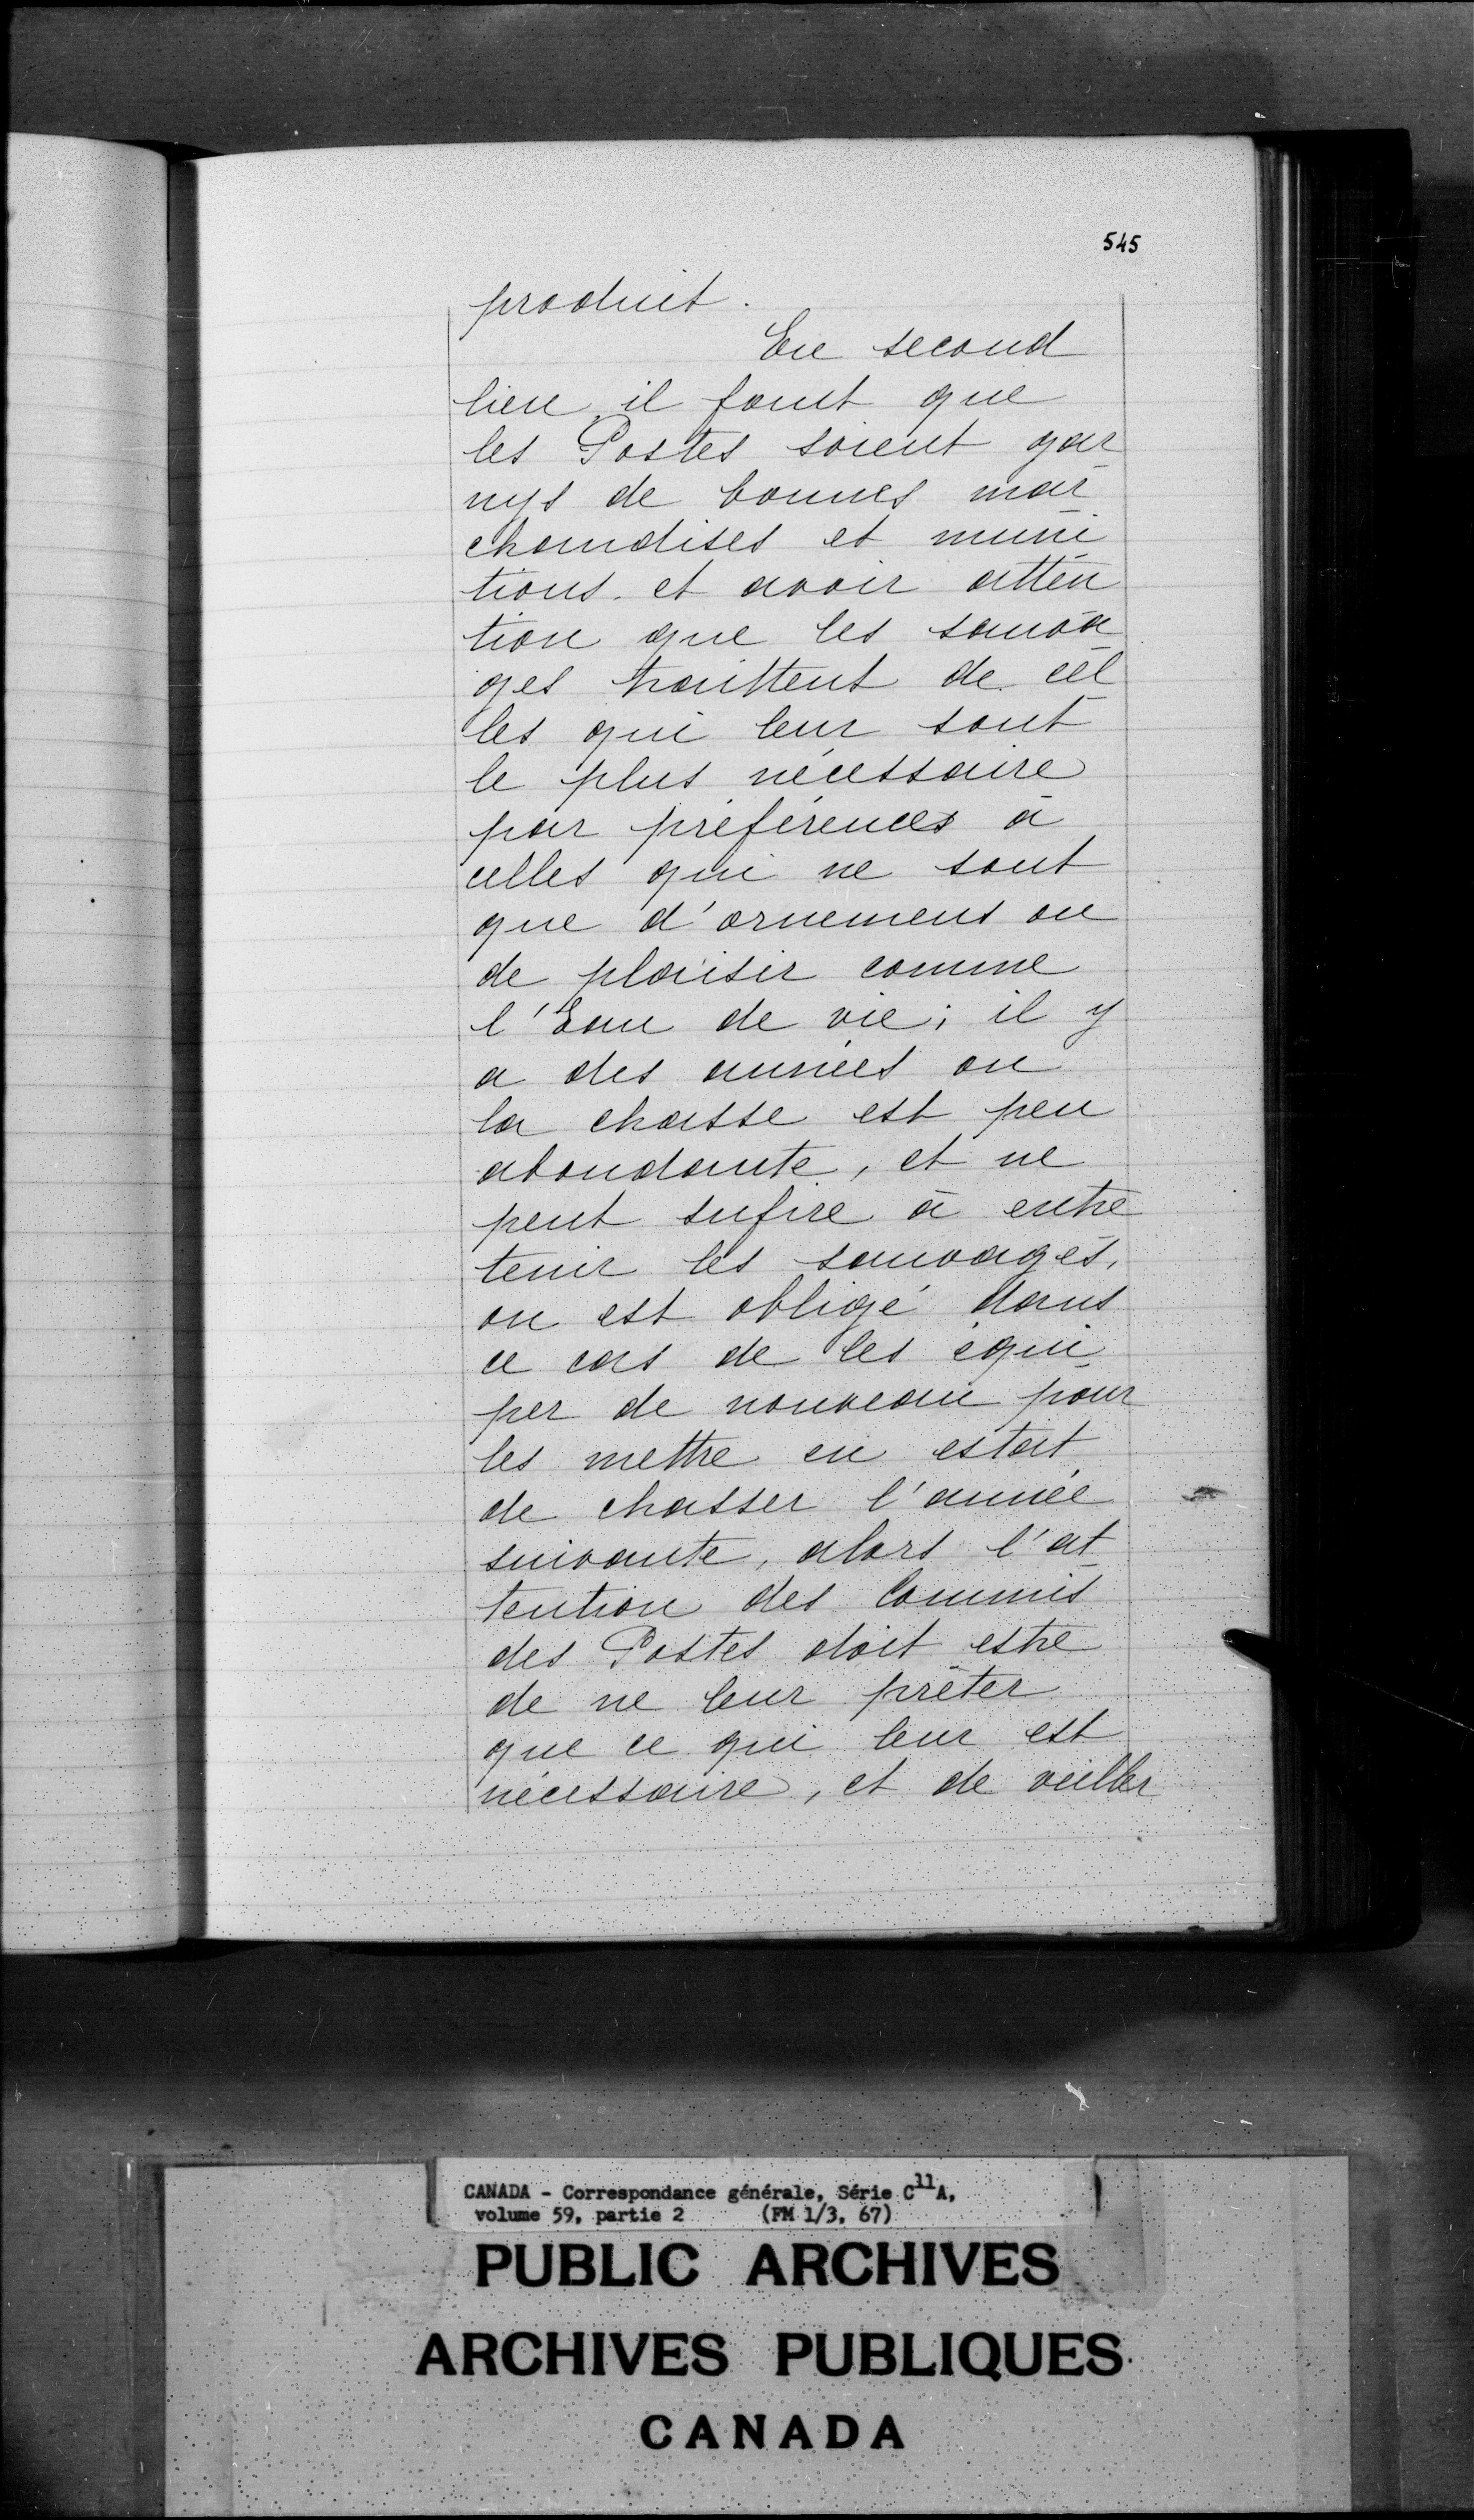 545
produit.
En second
lieu il faut que
les Postes soient gar
nys de bonnes mar
chandises et muni
tions. et avoir atten
tion que les sauva
ges traittent de cel
les qui leur sont
le plus nécessaire
par préférences à
celles qui ne sont
que d'ornemens ou
de plaisir comme
l'Eau de vie; il y
a des années ou
la chasse est peu
abondante, et ne
peut sufire à entre
tenir les sauvages,
on est obligé dans
ce cas de les équi
per de nouveau pour
les mettre en estat
de chasser l'année
suivante, alors l'at
tention des Commis
des Postes doit estre
de ne leur prêter
que ce qui leur est
nécessaire, et de veiller
CANADA - Correspondance générale, Série C11A,
volume 59, partie 2 (FM 1/3, 67)
PUBLIC ARCHIVES
ARCHIVES PUBLIQUES
CANADA